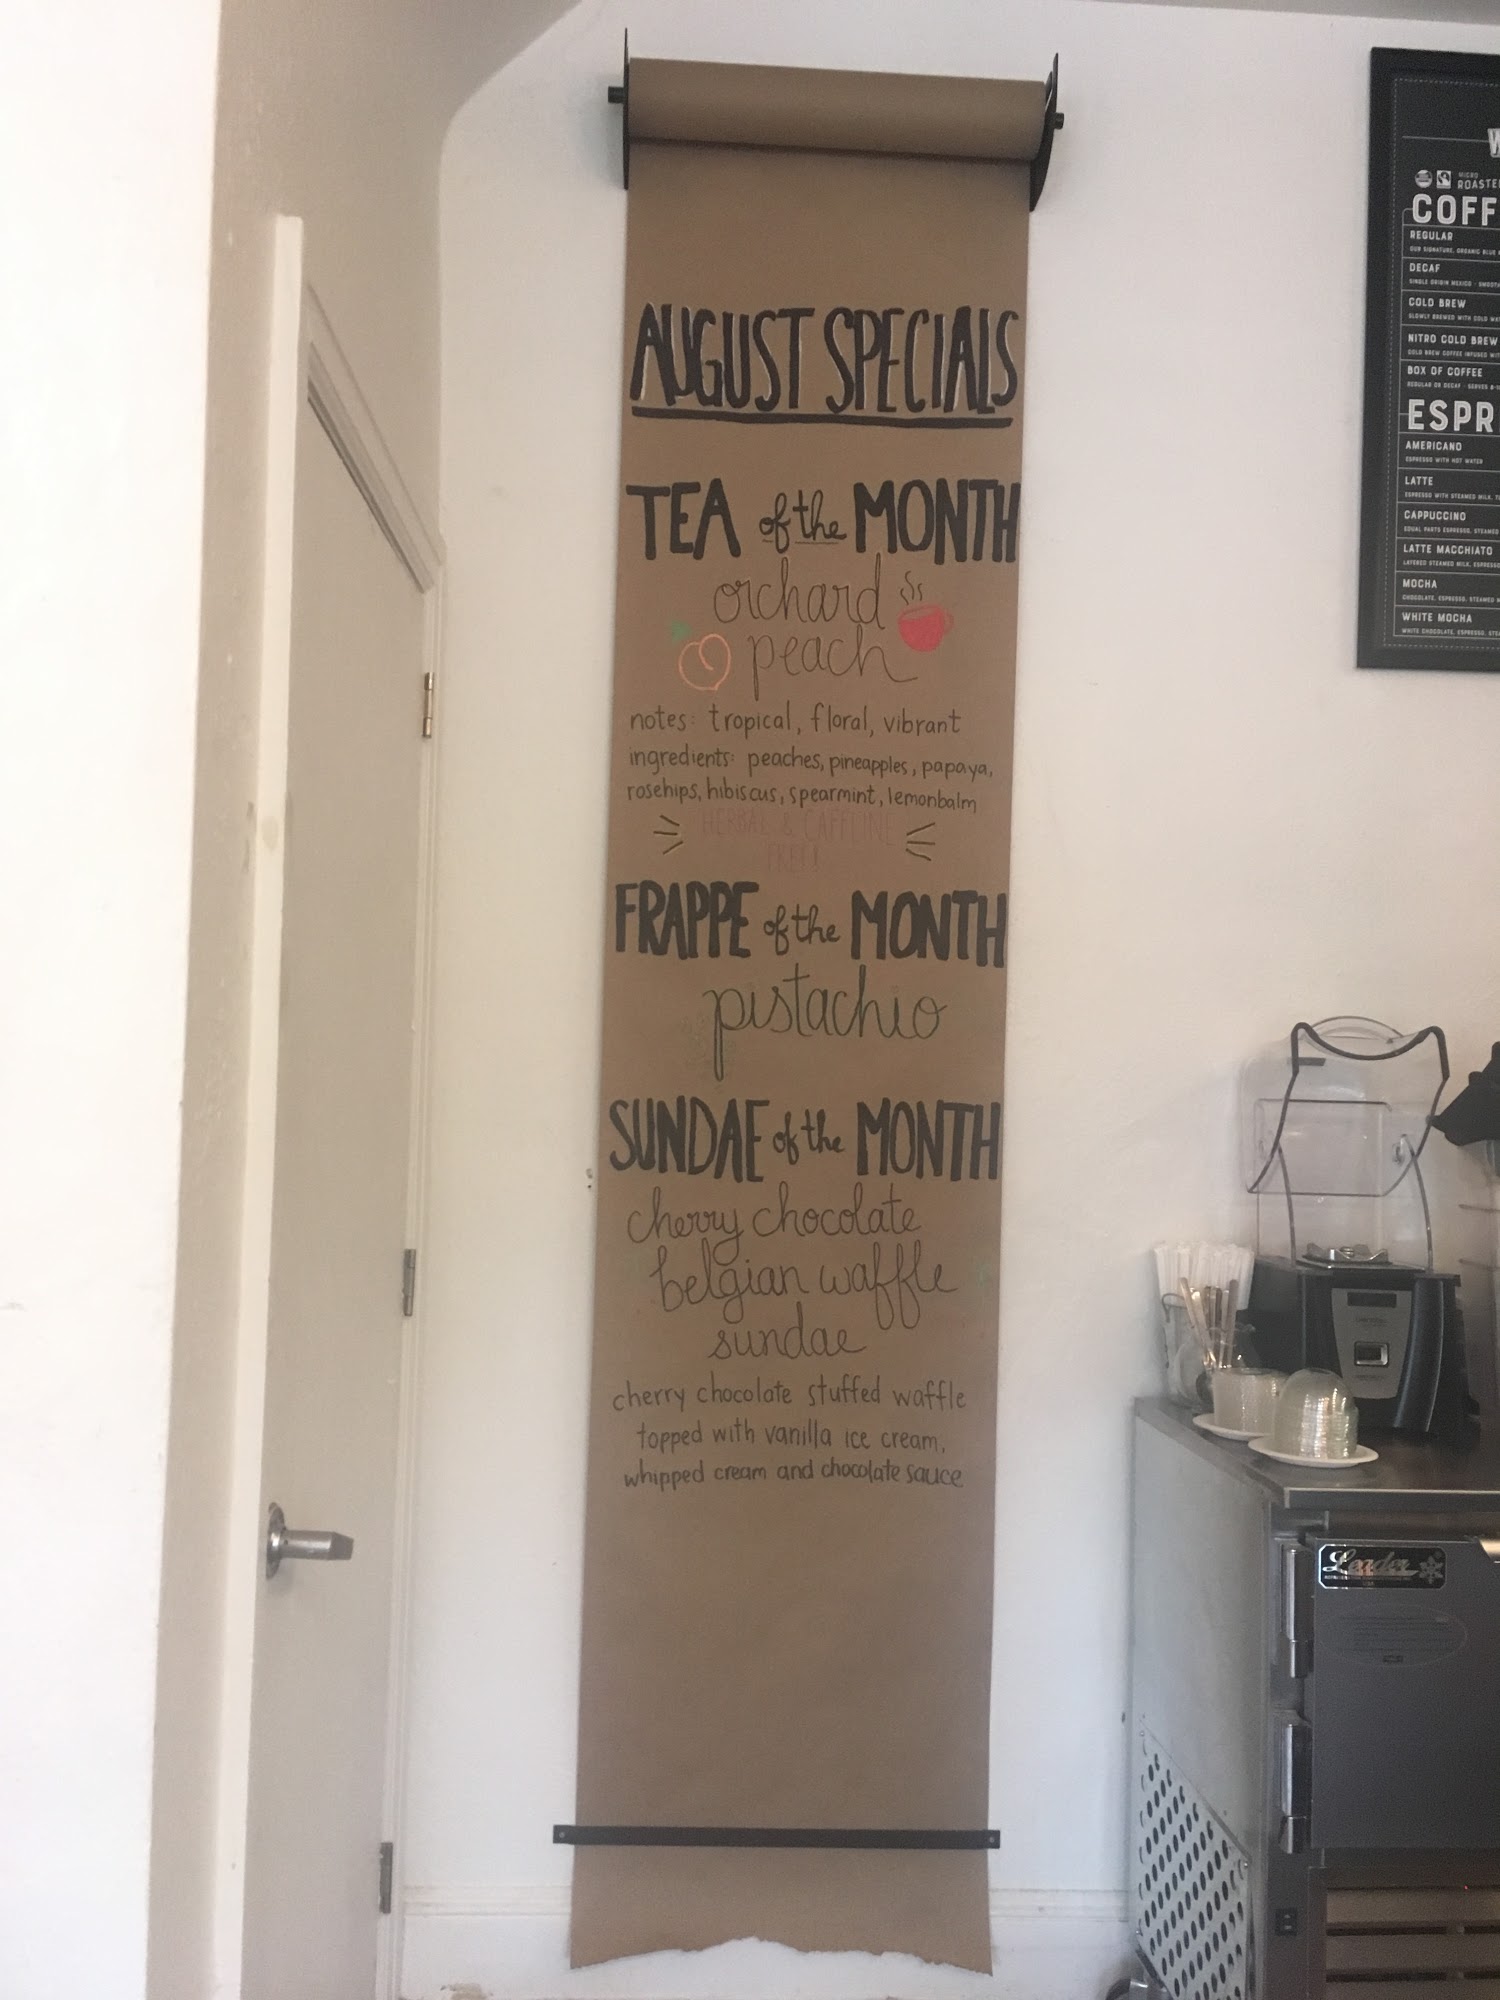 AUGUST SPECIALS
TEA of the MONTH
orchard
peach
notes: tropical, floral, vibrant
ingredients: peaches, pineapples, papaya,
rosehips, hibiscus, spearmint, lemonbalm
HERBAL & CAFFEINE
FREE!
FRAPPE of the MONTH
pistachio
SUNDAE of the MONTH
cherry chocolate
belgian waffle
sundae
cherry chocolate stuffed waffle
topped with vanilla ice cream,
whipped cream and chocolate sauce
MICRO
ROASTE
COFF
REGULAR
OUR SIGNATURE, ORGANIC BLUE
DECAF
SINGLE ORIGIN MEXICO - SMOOT
COLD BREW
SLOWLY BREWED WITH COLD WA
NITRO COLD BREW
COLD BREW COFFEE INFUSED WIT
BOX OF COFFEE
REGULAR OR DECAF - SERVES 8-1
ESPR
AMERICANO
ESPRESSO WITH HOT WATER
LATTE
ESPRESSO WITH STEAMED MILK, T
CAPPUCCINO
EQUAL PARTS ESPRESSO, STEAMED
LATTE MACCHIATO
LAYERED STEAMED MILK, ESPRESSO
MOCHA
CHOCOLATE, ESPRESSO, STEAMED M
WHITE MOCHA
WHITE CHOCOLATE, ESPRESSO, STE
Leader